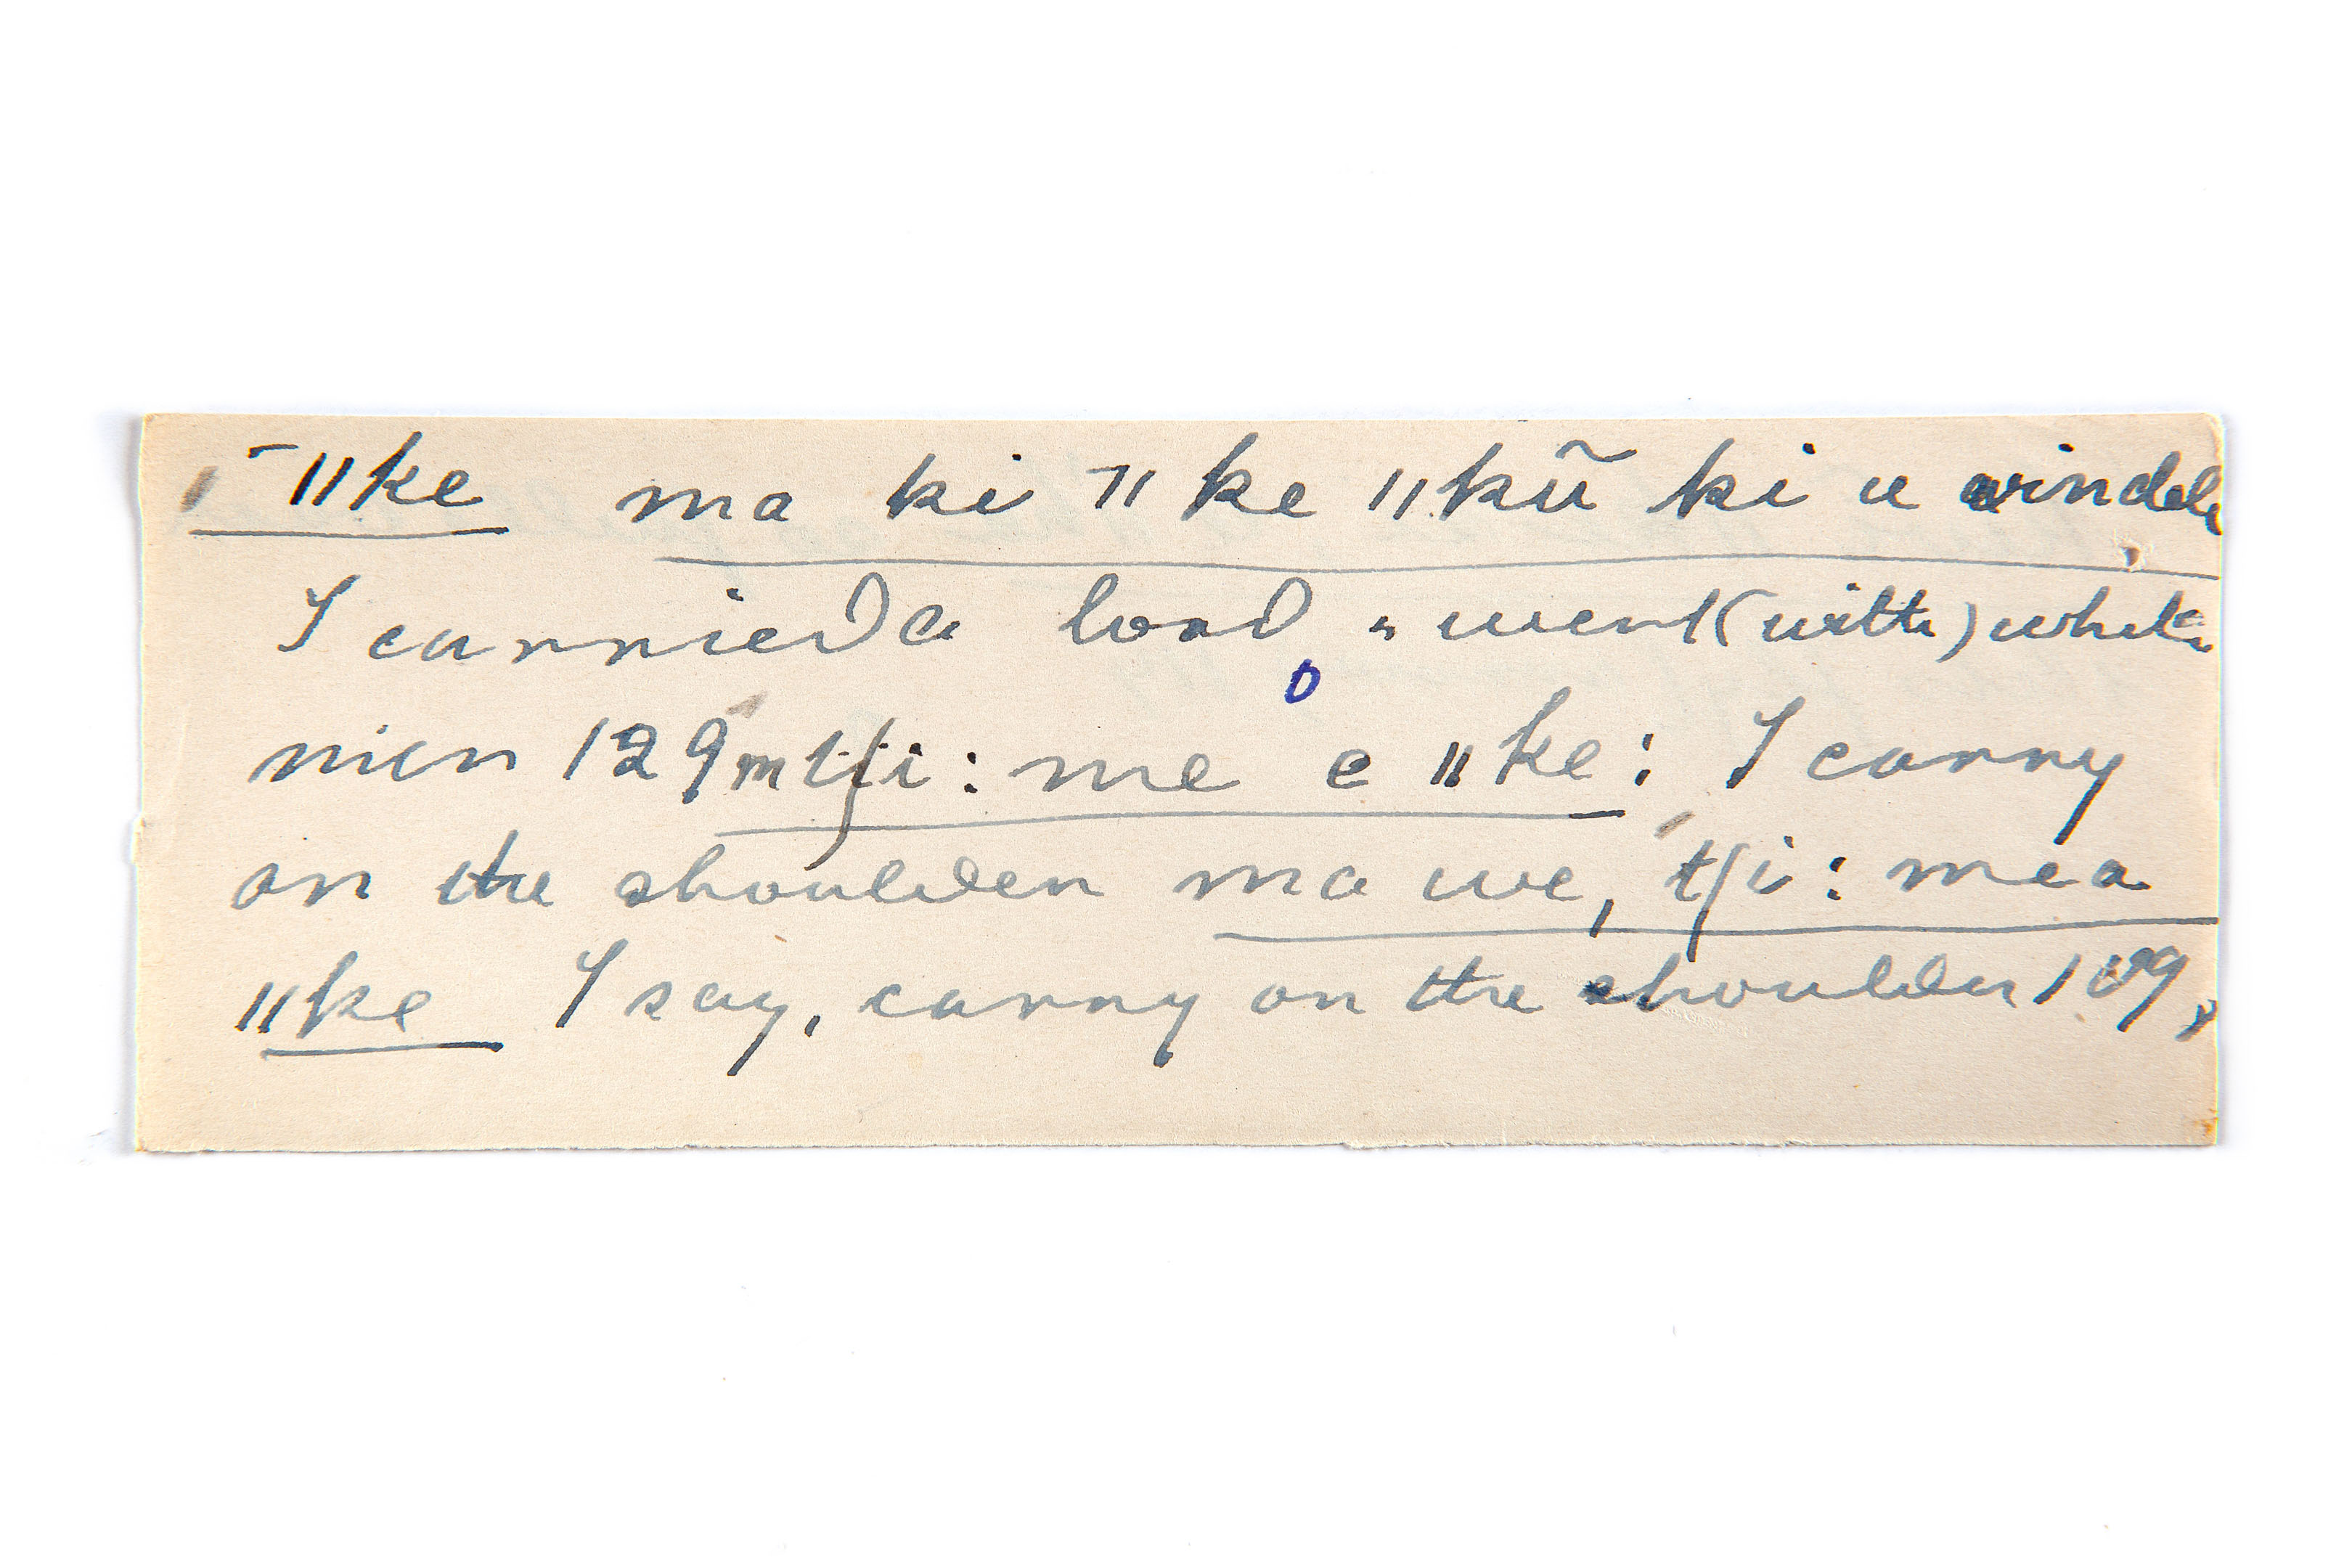 ˉ ǁke ma ki ˉǁ ke ǁkũ ki u
I carried a load & went (with) white
men 129 m tʃi: me e ǁke: I carry
on the shoulder ma we, tʃi: me a
ǁke I say, carry on the shoulder 109